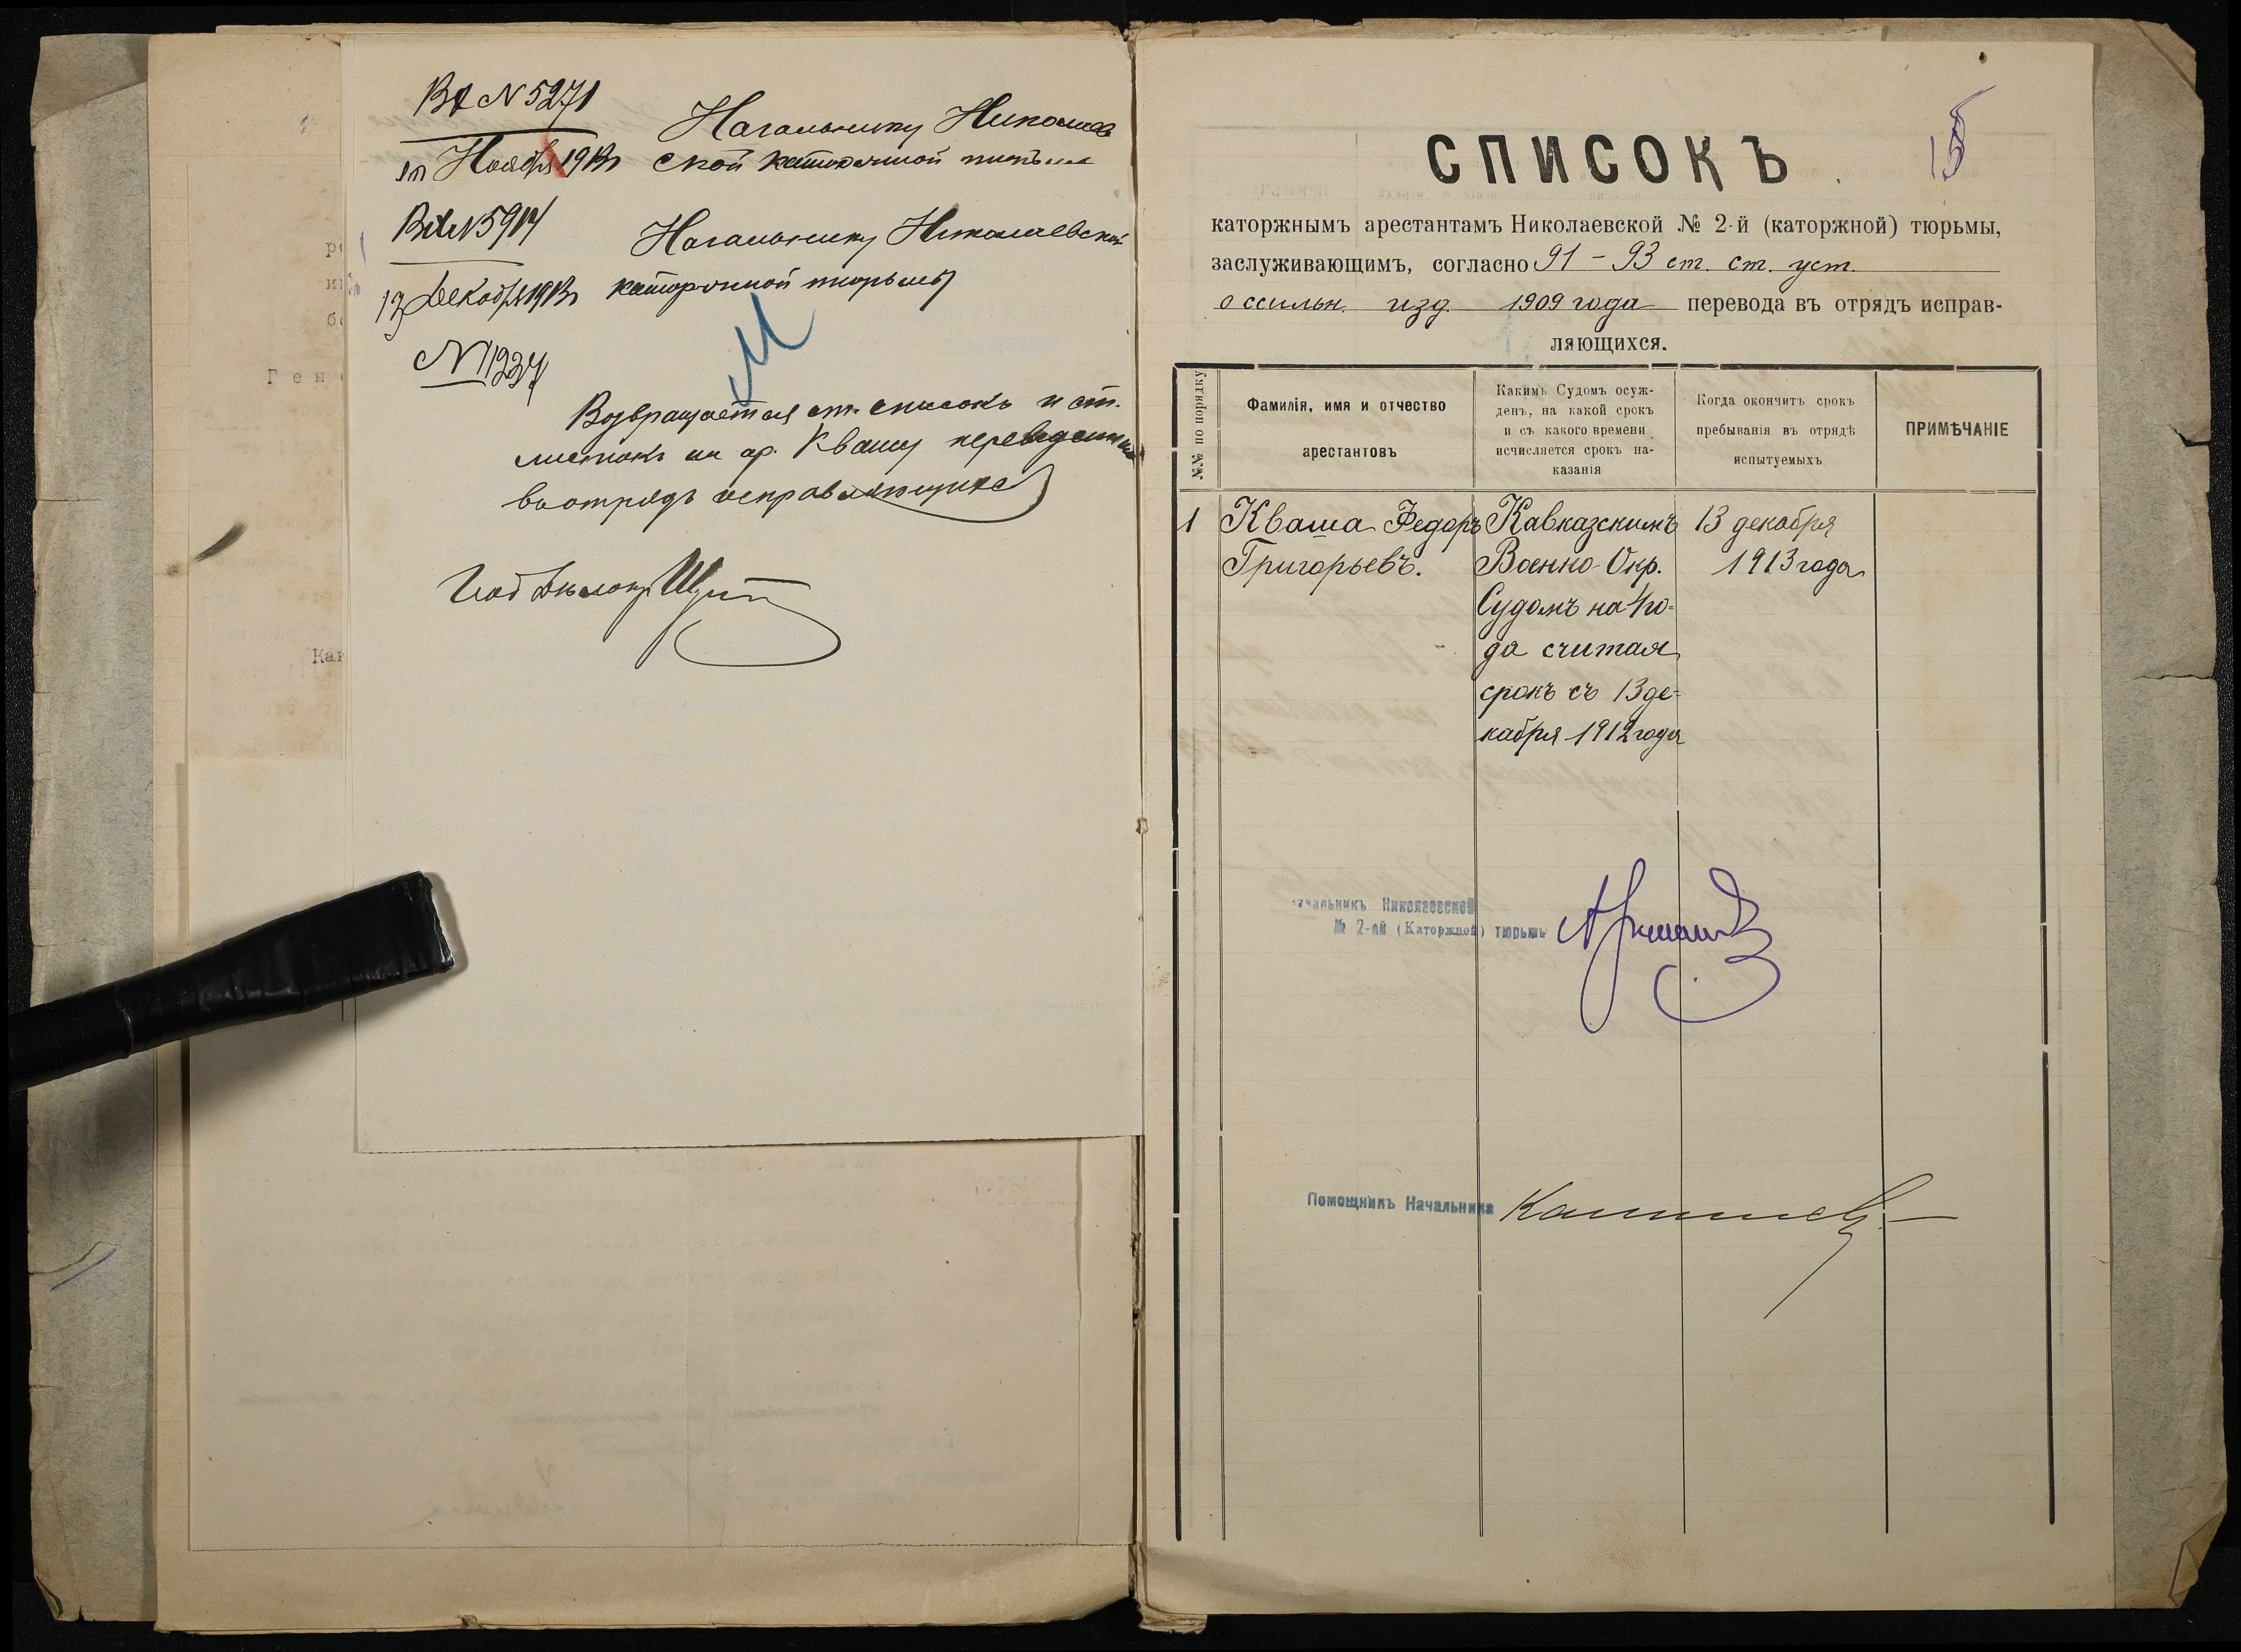 Вх N 5271
Начальнику Николаев
Ноября 1913
ской каторжной тюрьмы
Начальнику Николаевской
Декабря 1913
каторжной тюрьмы
Возвращается ст. списокъ и ст.
листокъ на ар. Квашу
въ отрядъ
Ген
Как
СПИСОКЪ
каторжнымъ арестантамъ Николаевской № 2-й (каторжной) тюрьмы,
заслуживающимъ, согласно 91 – 93 ст. ст. уст.
о ссыльн. изд. 1909 года перевода въ отрядъ исправ-
ляющихся.
№№ по порядку
Фамилія, имя и отчество
арестантовъ
Какимъ Судомъ осуж-
денъ, на какой срокъ
и съ какого времени
исчисляется срокъ на-
казанія
Когда окончитъ срокъ
пребыванія въ отрядѣ
испытуемыхъ
ПРИМѢЧАНІЕ
1 Кваша Федоръ
Григорьевъ.
Кавказскимъ
Военно-Окр.
Судомъ на 4 го-
да считая
срокъ съ 13 де-
кабря 1912 года
13 декабря
1913 года
ачальникъ Николаевской
№ 2-ой (Каторжной) тюрьмы
Помощникъ Начальника